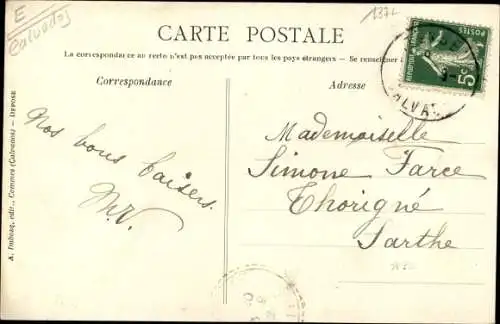 E
Calvados
137L
CARTE POSTALE
La correspondance au recto n'est pas acceptée par tous les pays étrangers — Se renseigner
Correspondance
Adresse
REPUBLIQUE FRANÇAISE
5c
CALVA
Nos bons baisers.
M.V.
Mademoiselle
Simone Farce
Thorigné
Sarthe
A. Dubosq, édit., Commes (Calvados) — DEPOSE